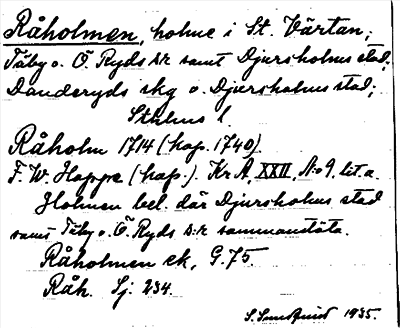 Råholmen, holme i St. Värtan;
Täby o. Ö. Ryds s:r samt Djursholms stad,
Danderyds skg o. Djursholms stad;
Sthlms l.
Råholm 1714 (kop. 1740).
F. W. Hoppe (kop.). Kr. A, XXII, No 9, lit. a.
Holmen bel. där Djursholms stad
samt Täby o. Ö. Ryds s:r sammanstöta.
Råholmen ek, G. 75
Råh. Sj. 234.
S. Sundquist 1935.